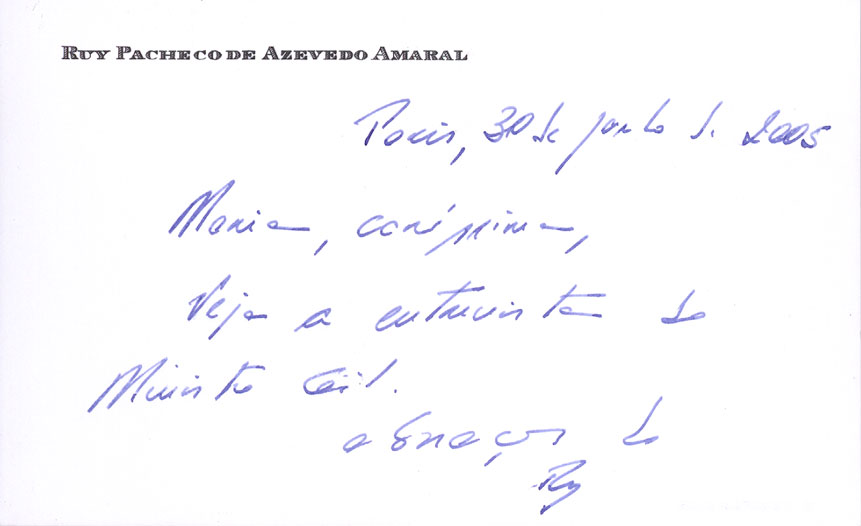 RUY PACHECO DE AZEVEDO AMARAL
Paris, 30 de junho de 2005
Maria, caríssima,
Veja a entrevista do
Ministro Gil.
abraços do
Ruy